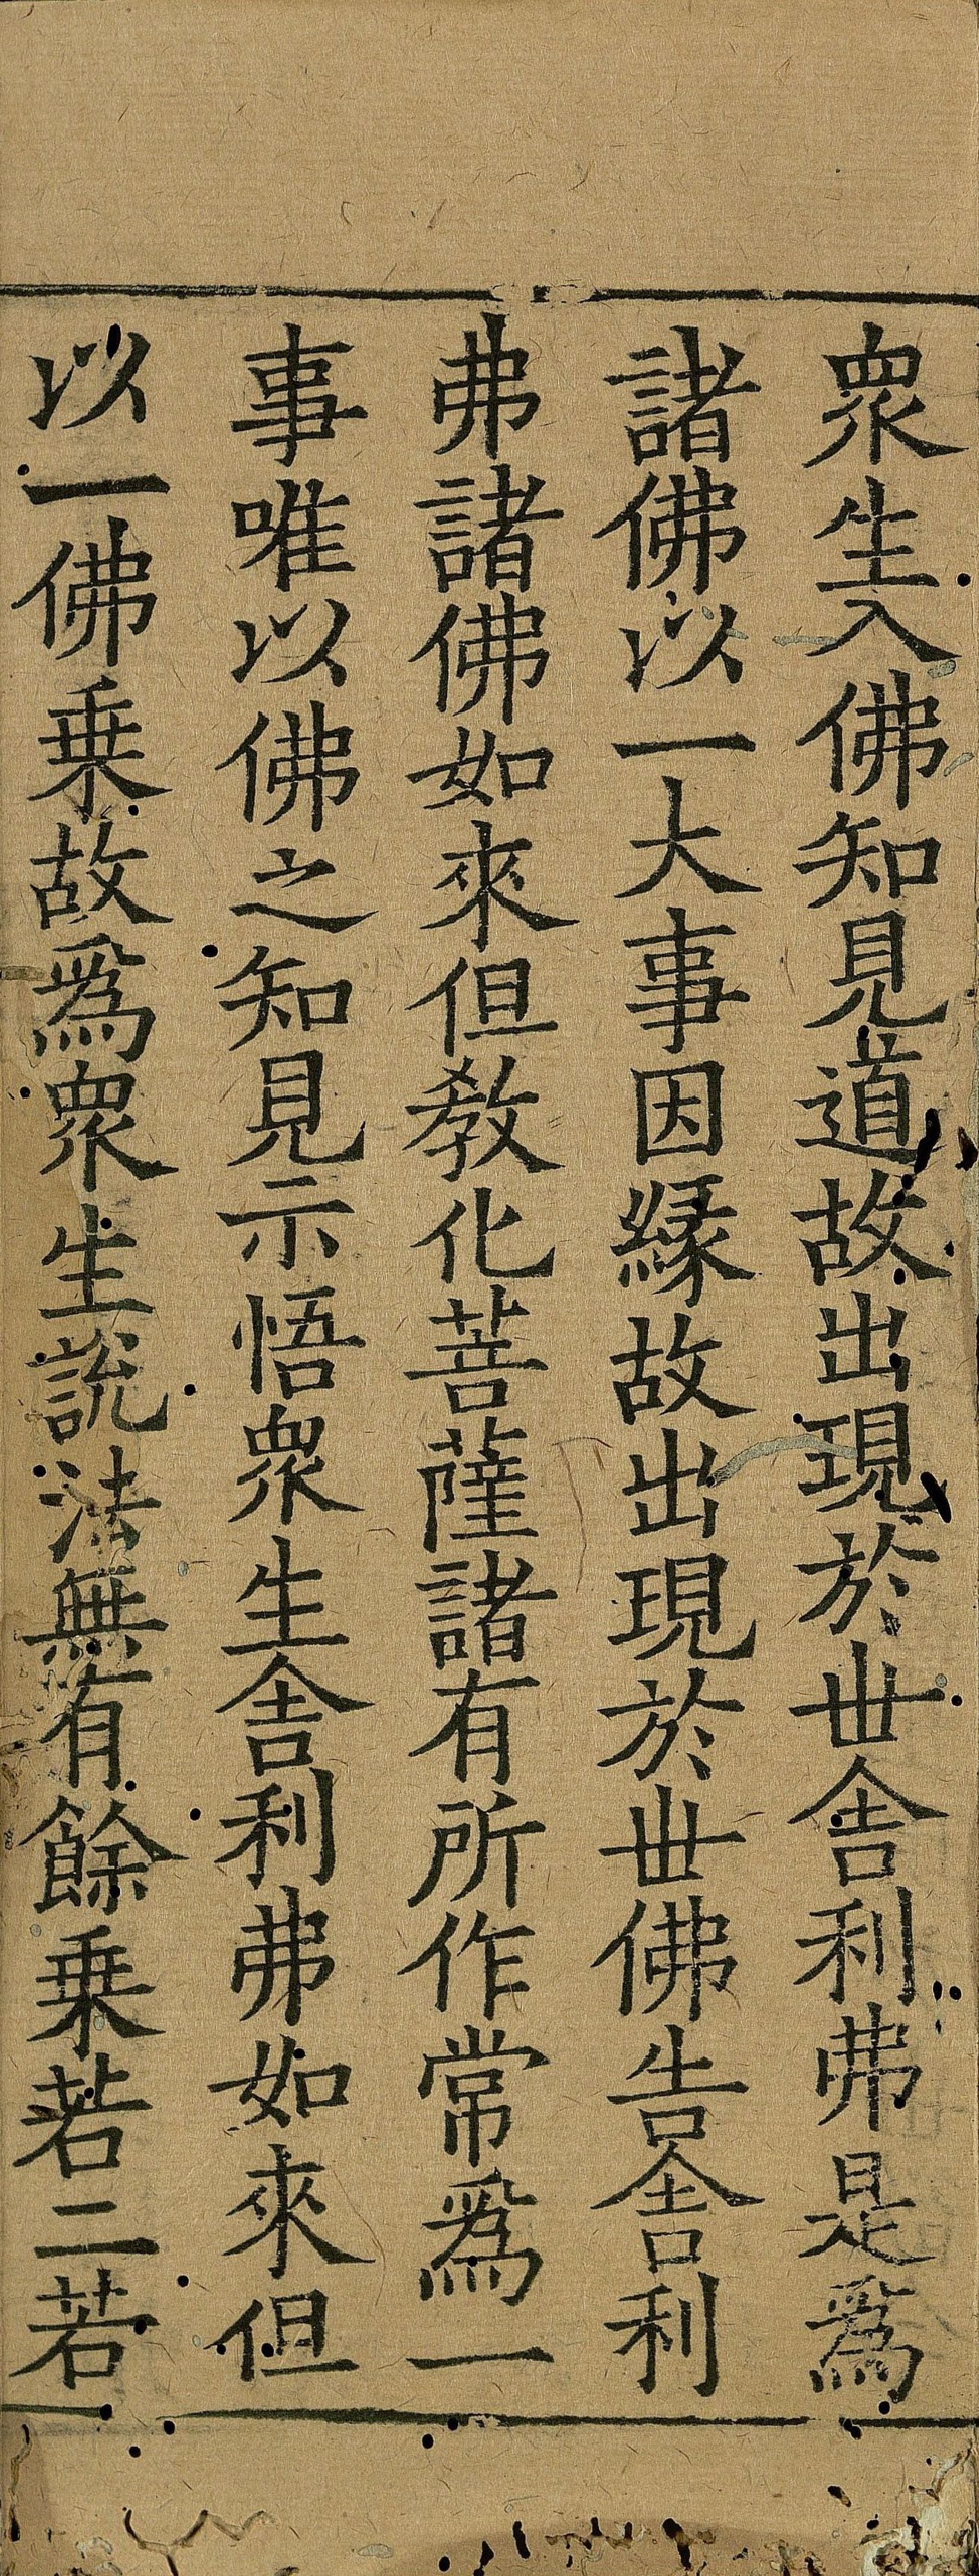 衆生入佛知見道故出現於世舍利弗是爲
諸佛以一大事因緣故出現於世佛告舍利
弗諸佛如來但教化菩薩諸有所作常爲一
事唯以佛之知見示悟衆生舍利弗如來但
以一佛乗故爲衆生說法無有餘乗若二若